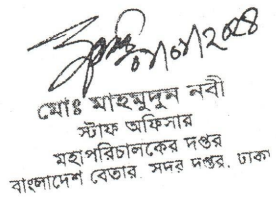 ০১/০১/২০২৪
মোঃ মাহমুদুন নবী
স্টাফ অফিসার
মহাপরিচালকের দপ্তর
বাংলাদেশ বেতার, সদর দপ্তর, ঢাকা